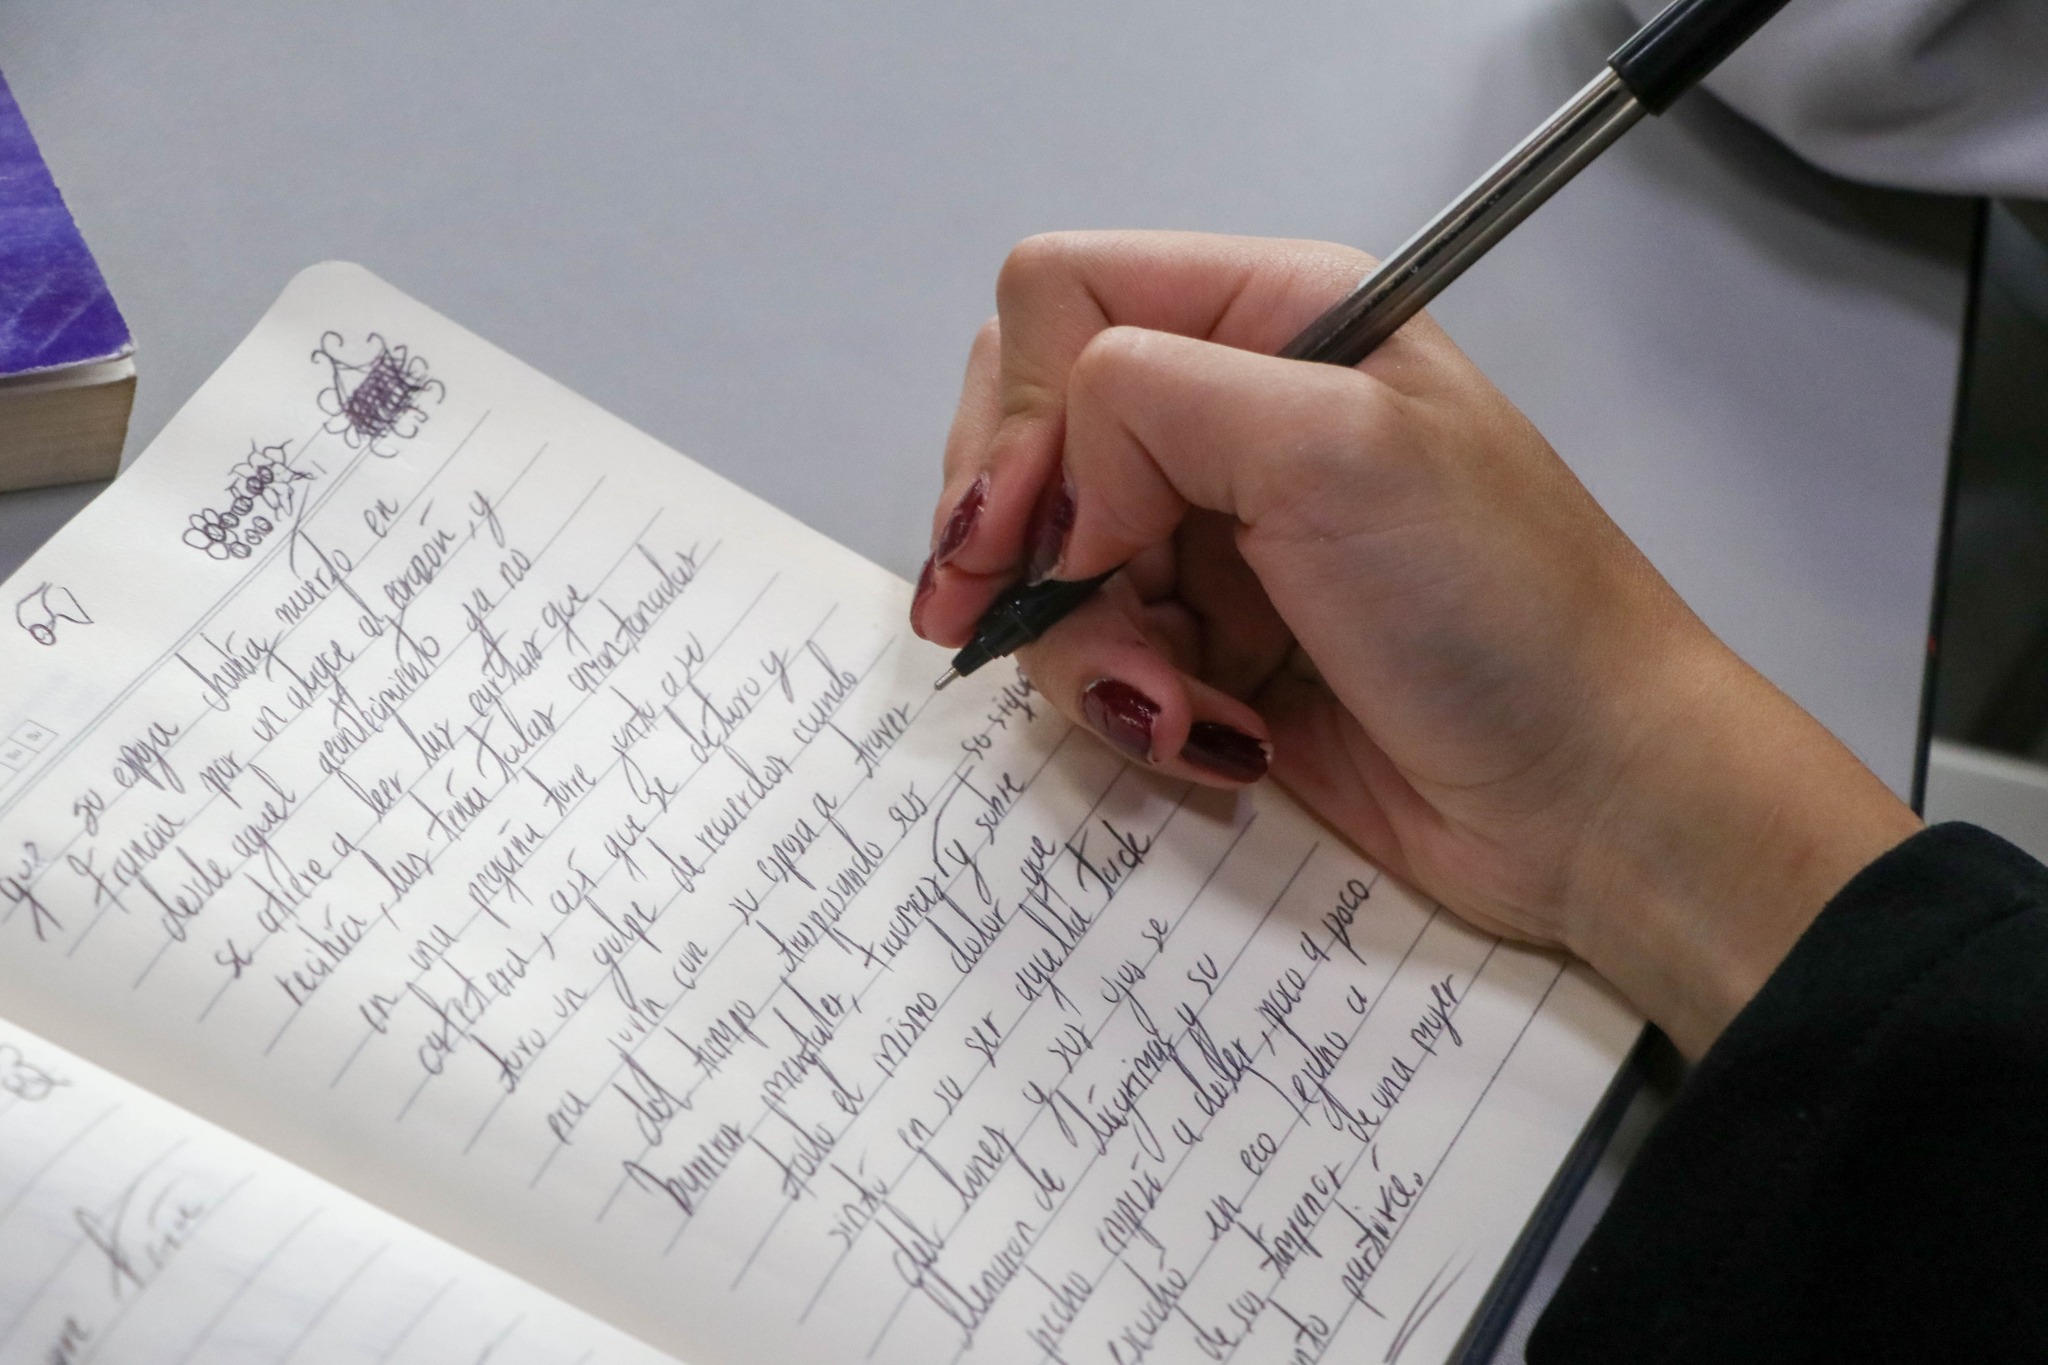 que su esposa había muerto en
Francia por un ataque al corazón, y
desde aquel acontecimiento ya no
se atreve a leer las cartas que
recibía, las tenía todas amontonadas
en una pequeña torre junto a su
cabecera, así que se detuvo y
tuvo un golpe de recuerdos cuando
era joven con su esposa a traver
del tiempo traspasando sus
barreras mentales, traumas y sobre
todo el mismo dolor que
sintió en su ser aquella tarde
del lunes y sus ojos se
llenaron de lágrimas y su
pecho empezó a doler, poco a poco
escuchó un eco lejano a
de sus tímpanos de una mujer